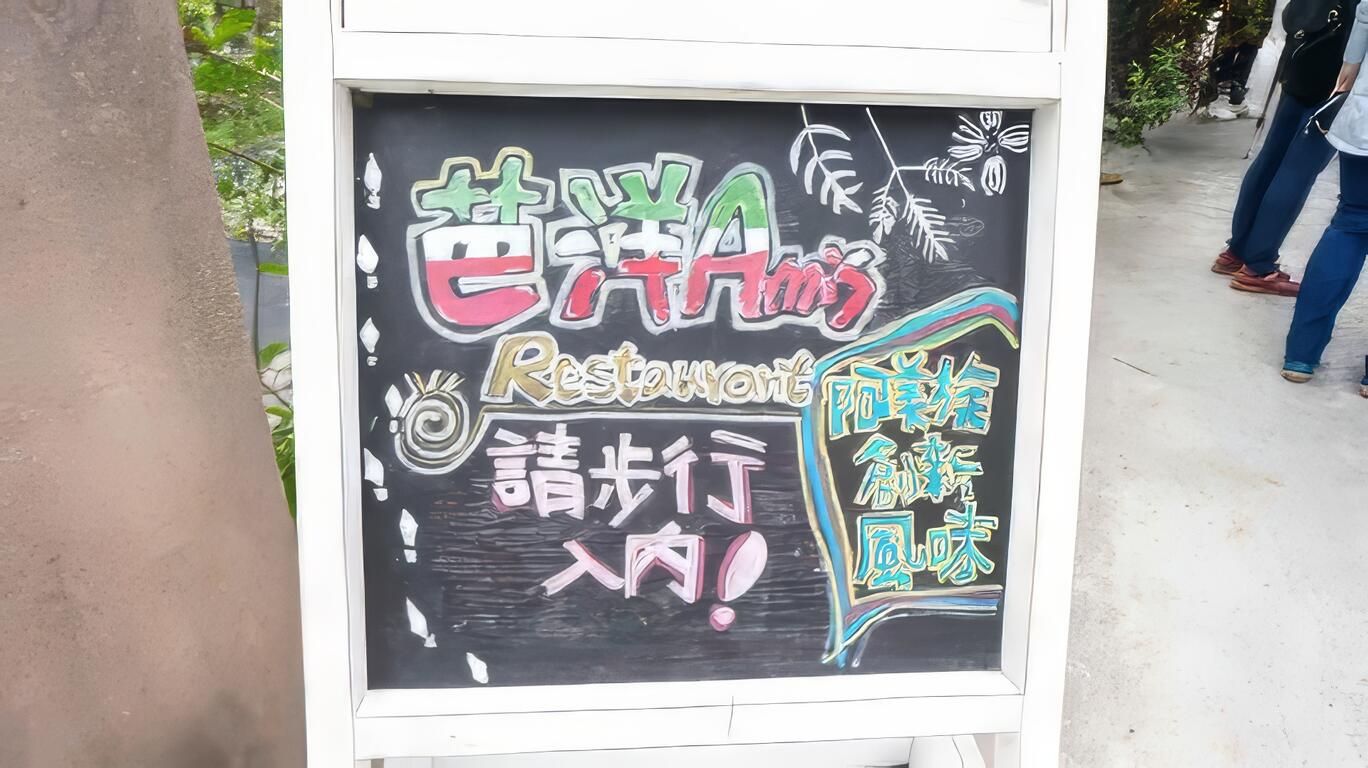 芭洋Ami's
Restaurant
請步行
入內!
阿美族
創新
風味